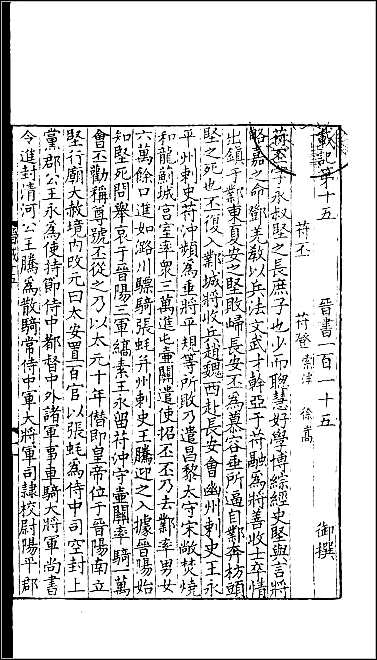 載記第十五　晉書一百一十五　御撰
苻丕　苻登　索泮　徐嵩
苻丕字永叔堅之長庶子也少而聰慧好學博綜經史堅與言將
略嘉之命鄧羌教以兵法文武才幹亞于苻融為將善收士卒情
出鎮于鄴東夏安之堅敗歸長安丕為慕容垂所逼自鄴奔枋頭
堅之死也丕復入鄴城將收兵趙魏西赴長安會幽州刺史王永
平州刺史苻沖頻為垂將平規等所敗乃遣昌黎太守宋敞焚燒
和龍薊城宮室率衆三萬進屯壷關遣使招丕丕乃去鄴率男女
六萬餘口進如潞川驃騎張蚝并州刺史王騰迎之入據晉陽始
知堅死問舉哀于晉陽三軍縞素王永留苻沖守壷關率騎一萬
會丕勸稱尊號丕從之乃以太元十年僣即皇帝位于晉陽南立
堅行廟大赦境內改元曰太安置百官以張蚝為侍中司空封上
黨郡公王永為使持節侍中都督中外諸軍事車騎大將軍尚書
令進封清河公王騰為散騎常侍中軍大將軍司隸校尉陽平郡